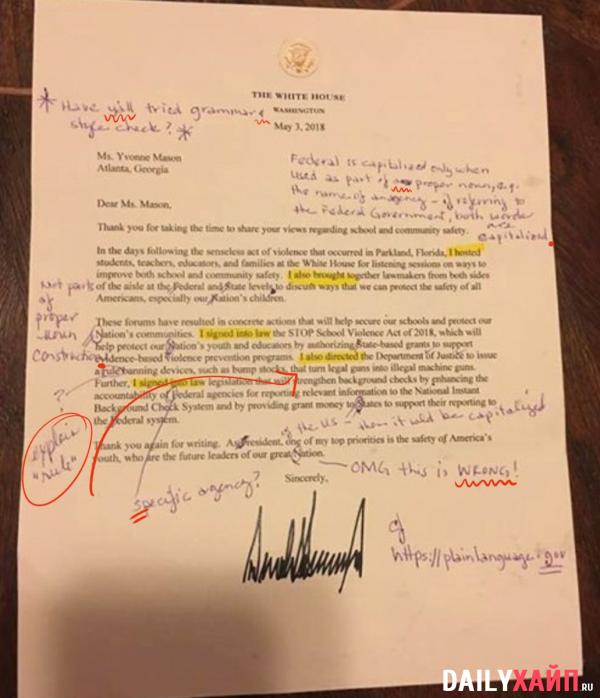 THE WHITE HOUSE
WASHINGTON
May 3, 2018
* Have y'all tried grammar &
style check? *
Ms. Yvonne Mason
Atlanta, Georgia
Federal is capitalized only when
used as part of proper noun, e.g.
the name of an agency - if referring to
the Federal Government, both words
are
capitalized.
Dear Ms. Mason,
Thank you for taking the time to share your views regarding school and community safety.
In the days following the senseless act of violence that occurred in Parkland, Florida, I hosted
students, teachers, educators, and families at the White House for listening sessions on ways to
improve both school and community safety. I also brought together lawmakers from both sides
of the aisle at the Federal and State levels to discuss ways that we can protect the safety of all
Americans, especially our Nation's children.
Not parts
of
proper
noun
construction
These forums have resulted in concrete actions that will help secure our schools and protect our
Nation's communities. I signed into law the STOP School Violence Act of 2018, which will
help protect our Nation's youth and educators by authorizing State-based grants to support
evidence-based violence prevention programs. I also directed the Department of Justice to issue
a rule banning devices, such as bump stocks, that turn legal guns into illegal machine guns.
Further, I signed into law legislation that will strengthen background checks by enhancing the
accountability of Federal agencies for reporting relevant information to the National Instant
Background Check System and by providing grant money to States to support their reporting to
the Federal system.
?
explain
"rule"
of the US - then it wld be capitalized
Thank you again for writing. As President, one of my top priorities is the safety of America's
youth, who are the future leaders of our great Nation.
OMG this is WRONG!
specific agency?
Sincerely,
https://plainlanguage.gov
DAILYХАЙП.RU